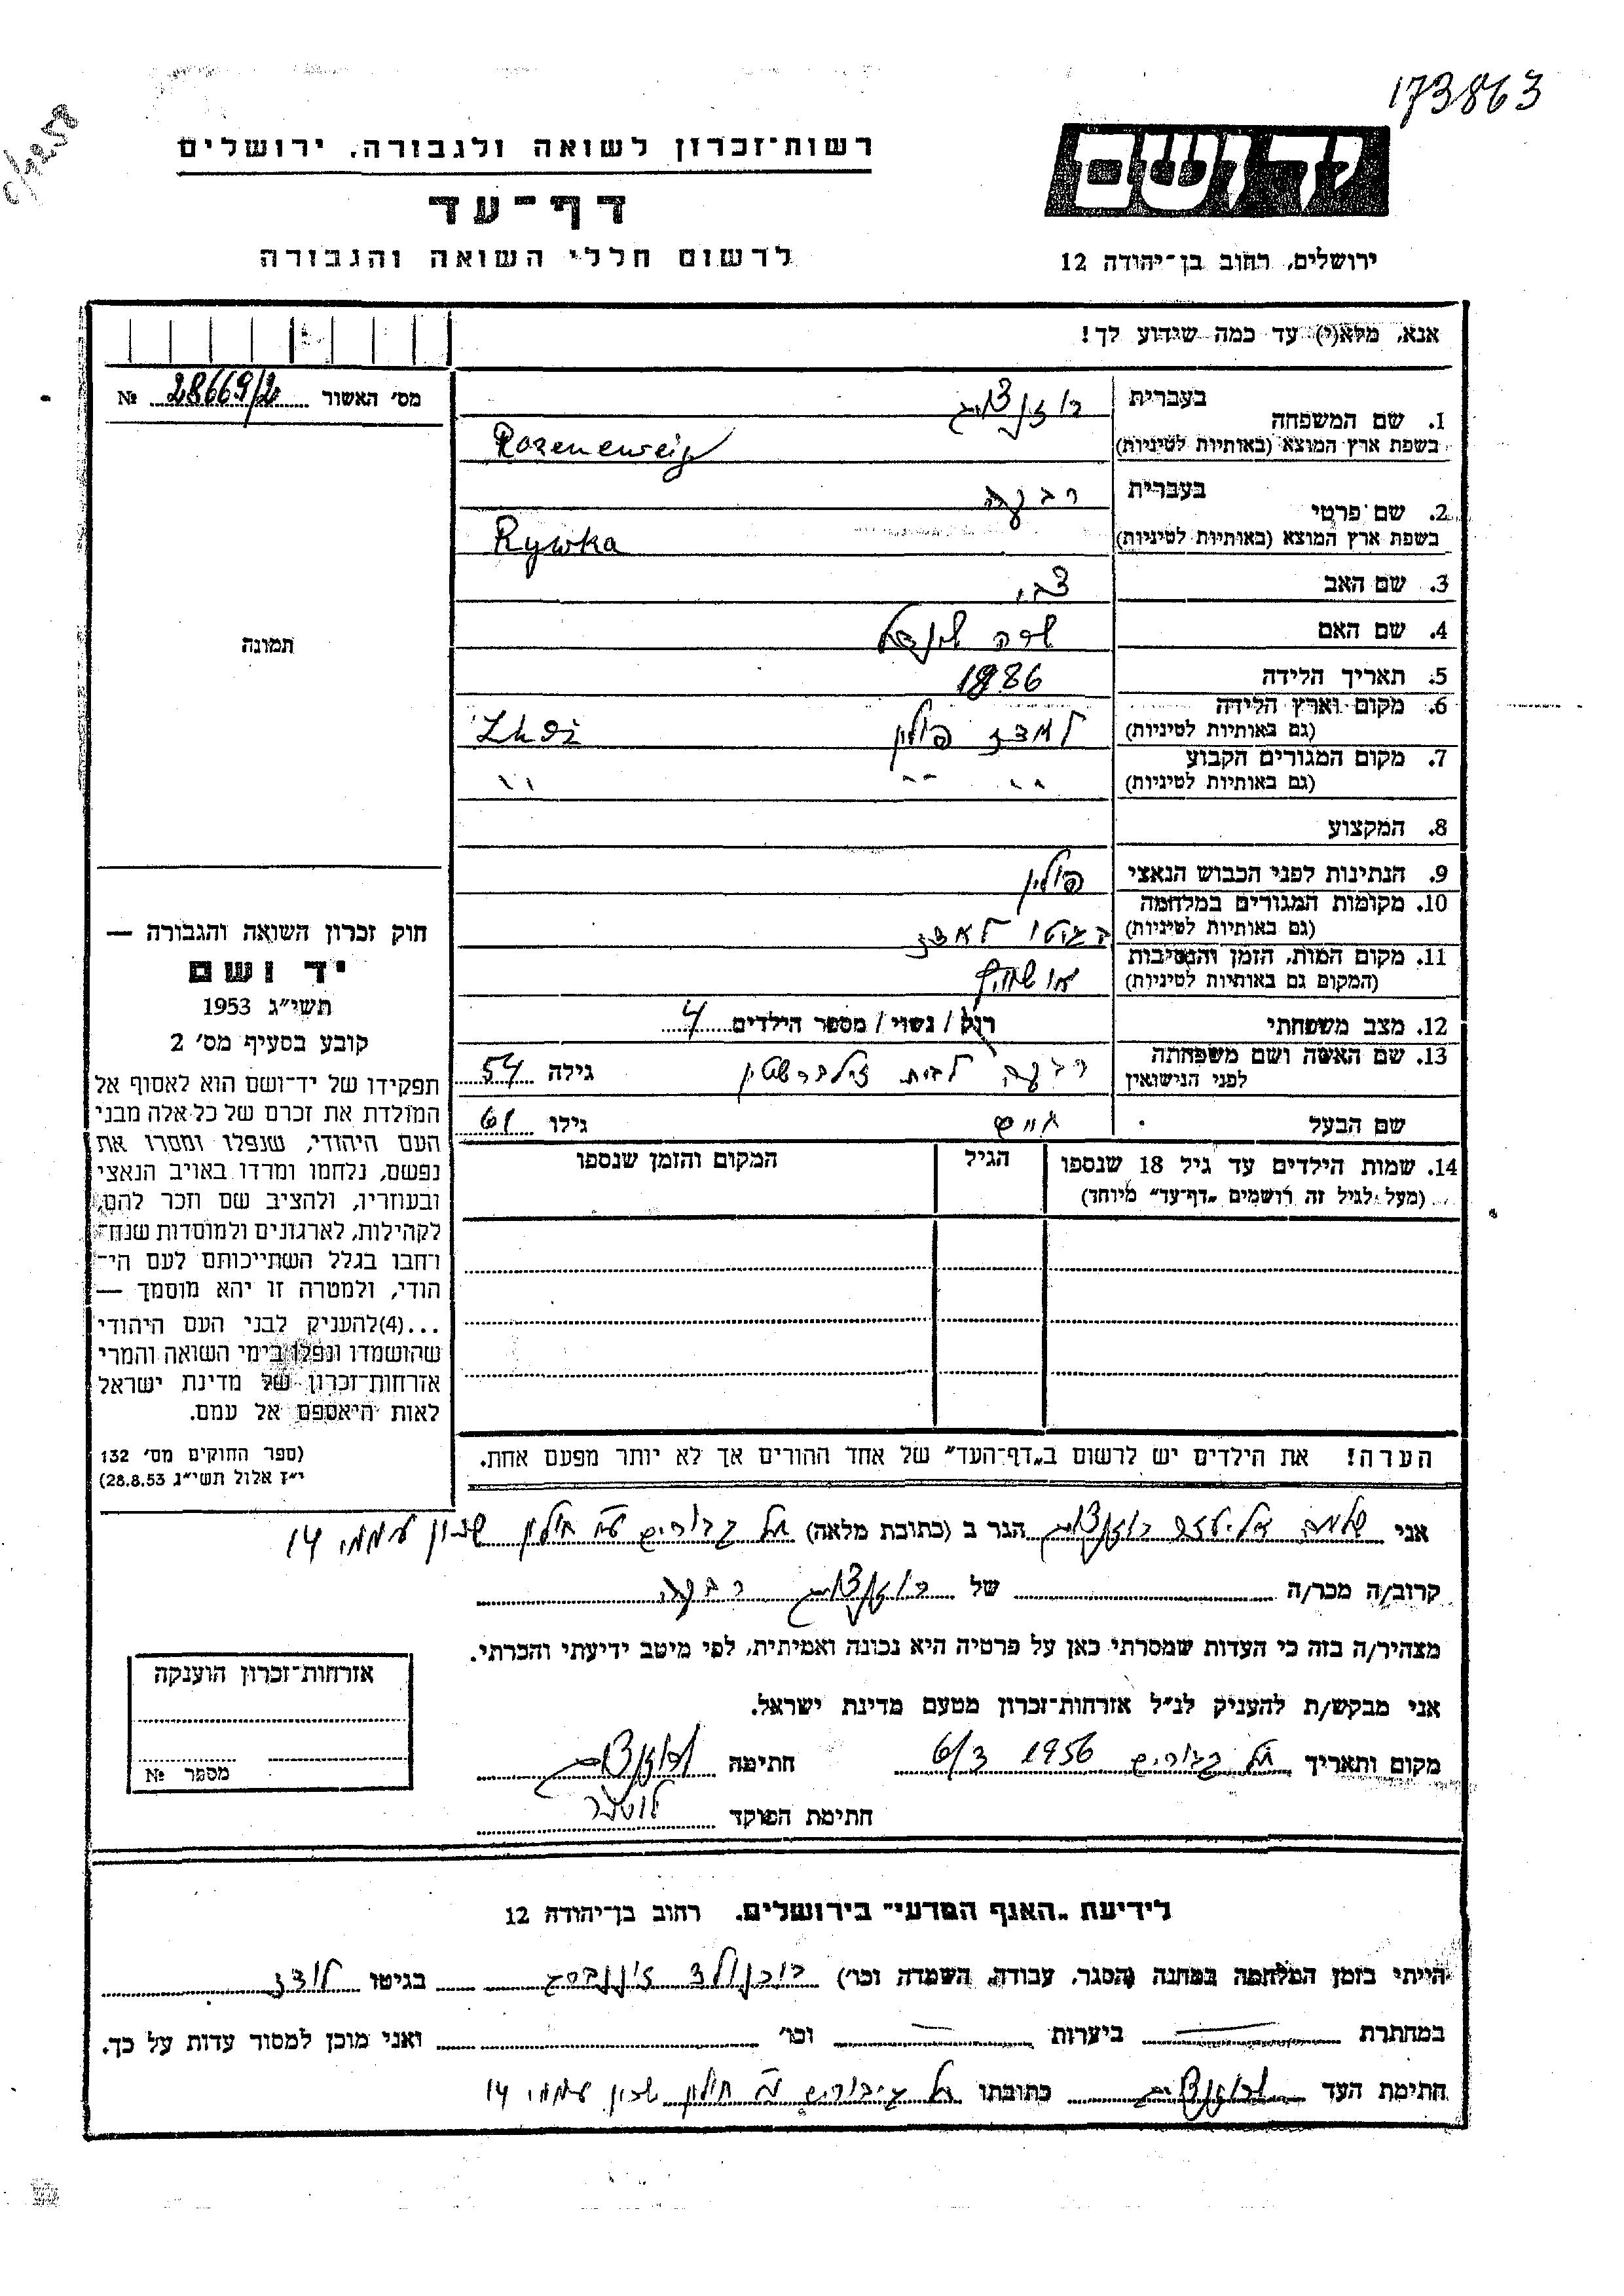 173863
רשות־זכרון לשואה ולגבורה, ירושלים
יד ושם
דף־עד
ירושלים, רחוב בן־יהודה 12
לרשום חללי השואה והגבורה
אנא, מלא(י) עד כמה שידוע לך!
מס' האשור № 28669/2
1. שם המשפחה בעברית רוזנצויג
בשפת ארץ המוצא (באותיות לטיניות) Rozeneweig
2. שם פרטי בעברית רבקה
בשפת ארץ המוצא (באותיות לטיניות) Rywka
3. שם האב צבי
4. שם האם שרה
5. תאריך הלידה 1886
6. מקום וארץ הלידה
(גם באותיות לטיניות) לאדז פולין
7. מקום המגורים הקבוע
(גם באותיות לטיניות) " " "
8. המקצוע
9. הנתינות לפני הכבוש הנאצי פולין
10. מקומות המגורים במלחמה
(גם באותיות לטיניות) בגטו לאדז
11. מקום המות, הזמן והנסיבות
(המקום גם באותיות לטיניות) אושוויץ
12. מצב משפחתי רוק / נשוי / מספר הילדים 4
13. שם האשה ושם משפחתה
לפני הנישואין רבקה לבית זילברשטין גילה 54
שם הבעל חיים גילו 61
14. שמות הילדים עד גיל 18 שנספו הגיל המקום והזמן שנספו
(מעל לגיל זה רושמים "דף־עד" מיוחד)
הערה! את הילדים יש לרשום ב"דף־העד" של אחד ההורים אך לא יותר מפעם אחת.
תמונה
חוק זכרון השואה והגבורה —
יד ושם
תשי"ג 1953
קובע בסעיף מס' 2
תפקידו של יד־ושם הוא לאסוף אל
המולדת את זכרם של כל אלה מבני
העם היהודי, שנפלו ומסרו את
נפשם, נלחמו ומרדו באויב הנאצי
ובעוזריו, ולהציב שם וזכר להם,
לקהילות, לארגונים ולמוסדות שנח־
רחבו בגלל השתייכותם לעם הי־
הודי, ולמטרה זו יהא מוסמך —
...(4)להעניק לבני העם היהודי
שהושמדו ונפלו בימי השואה והמרי
אזרחות־זכרון של מדינת ישראל
לאות היאספם אל עמם.
(ספר החוקים מס' 132
י"ז אלול תשי"ג 28.8.53)
אני שלמה רוזנצויג הגר ב (כתובת מלאה) תל גבורים חולון שכון עממי 14
קרוב/ה מכר/ה של רוזנצויג רבקה
מצהיר/ה בזה כי העדות שמסרתי כאן על פרטיה היא נכונה ואמיתית, לפי מיטב ידיעתי והכרתי.
אני מבקש/ת להעניק לנ"ל אזרחות־זכרון מטעם מדינת ישראל.
מקום ותאריך תל גבורים 1956 6/3 חתימה רוזנצויג
חתימת הפוקד
אזרחות־זכרון הוענקה
מספר №
לידיעת "האגף המדעי" בירושלים. רחוב בן־יהודה 12
הייתי בזמן המלחמה במחנה (הסגר, עבודה, השמדה וכו') בוכנולד בגיטו לודז
במחתרת ביערות וכו' ואני מוכן למסור עדות על כך.
חתימת העד רוזנצויג כתובתו תל גיבורים חולון שכון עממי 14